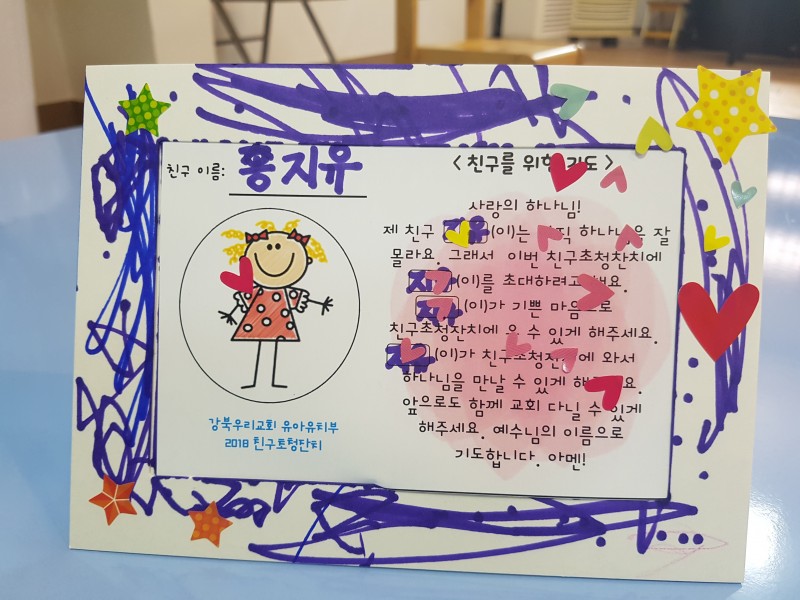 친구 이름: 홍지유
강북우리교회 유아유치부
2018 친구초청잔치
< 친구를 위한 기도 >
사랑의 하나님!
제 친구 지유 (이)는 아직 하나님을 잘
몰라요. 그래서 이번 친구초청잔치에
지유 (이)를 초대하려고 해요.
지유 (이)가 기쁜 마음으로
친구초청잔치에 올 수 있게 해주세요.
지유 (이)가 친구초청잔치에 와서
하나님을 만날 수 있게 해주세요.
앞으로도 함께 교회 다닐 수 있게
해주세요. 예수님의 이름으로
기도합니다. 아멘!